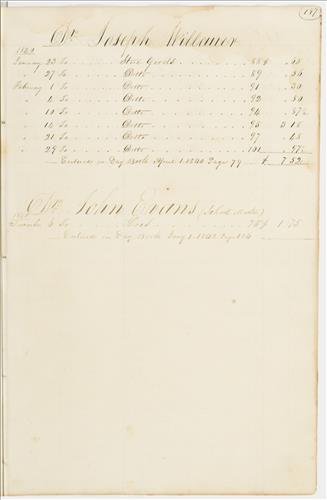 187
Dr. Joseph Willauer
1840
January 23 To . . . . Store Goods . . . . 88 $ . 60
" 27 To . . . . Ditto . . . . 89 . 36
February 1 To . . . . Ditto . . . . 91 . 30
" 4 To . . . . Ditto . . . . 92 . 80
" 10 To . . . . Ditto . . . . 94 . 87½
" 14 To . . . . Ditto . . . . 95 3 18
" 21 To . . . . Ditto . . . . 97 . 48
" 29 To . . . . Ditto . . . . 101 . 97½
Entered in Day Book April 1. 1840 Page 79 $ 7.52
Dr. John Evans (School Master)
6 To . . . . $ 1.75
Entered in Day Book Jany 1. 1842 Page